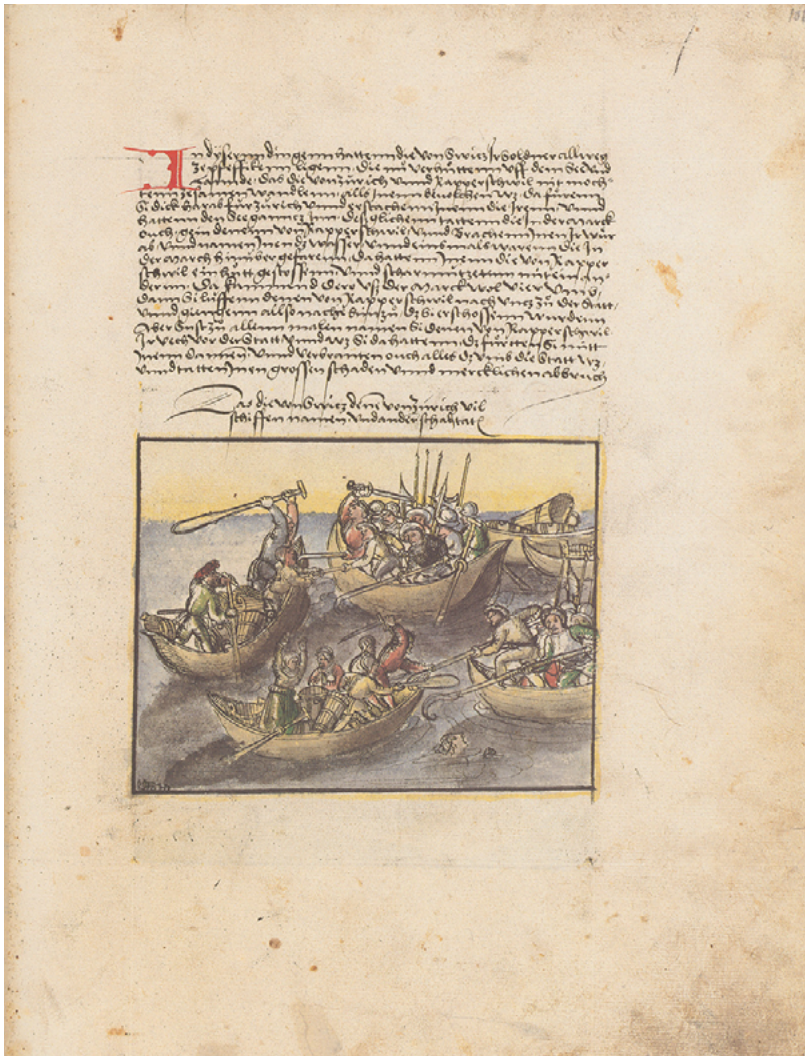 In dysernn dingenn hattenn die von Swicz Ir soldner allweg
ze pfeffikenn ligenn, die
das die von zürich vnnd Rapperschwil nit moch-
tenn zesamen wandlenn, alls Innenn
Si dick harab für zürich vnnd erstachenn Inenn die Irenn, vnnd
hattenn den See gannez Inn, desglichenn tattenn die In der Marck
ouch, gein denenn von Rapperschwil, vnnd brachenn Inen Ir
ab, vnnd namen Inen dz wasser, vnnd einsmals warenn die In
der March hinüber gefarenn, da hattenn Inenn die von Rapper
schwil ein hůtt gestossenn, vnnd scharmützetenn mit ein an-
dernn, Da kam vnnd dero vß der Marck wol vier
dann Si luffenn denen von Rapperschwil nach vncz zů der Statt,
vnnd giengenn allso nache hinzů dz Si erschossenn wurdenn
Aber sust zů allenn malen namen Si denen von Rapperschwil
Ir vech vor der Statt, vnnd wz Si da hattenn, dz fůrten Si mitt
Inenn dannen, vnnd verbranten ouch alles dz vmb die Statt wz,
vnnd tatten Inen grossen schaden vnnd mercklichen abbruch
Das die von Swicz denen von zürich vil
schiffen namen, vnd ander schah tat